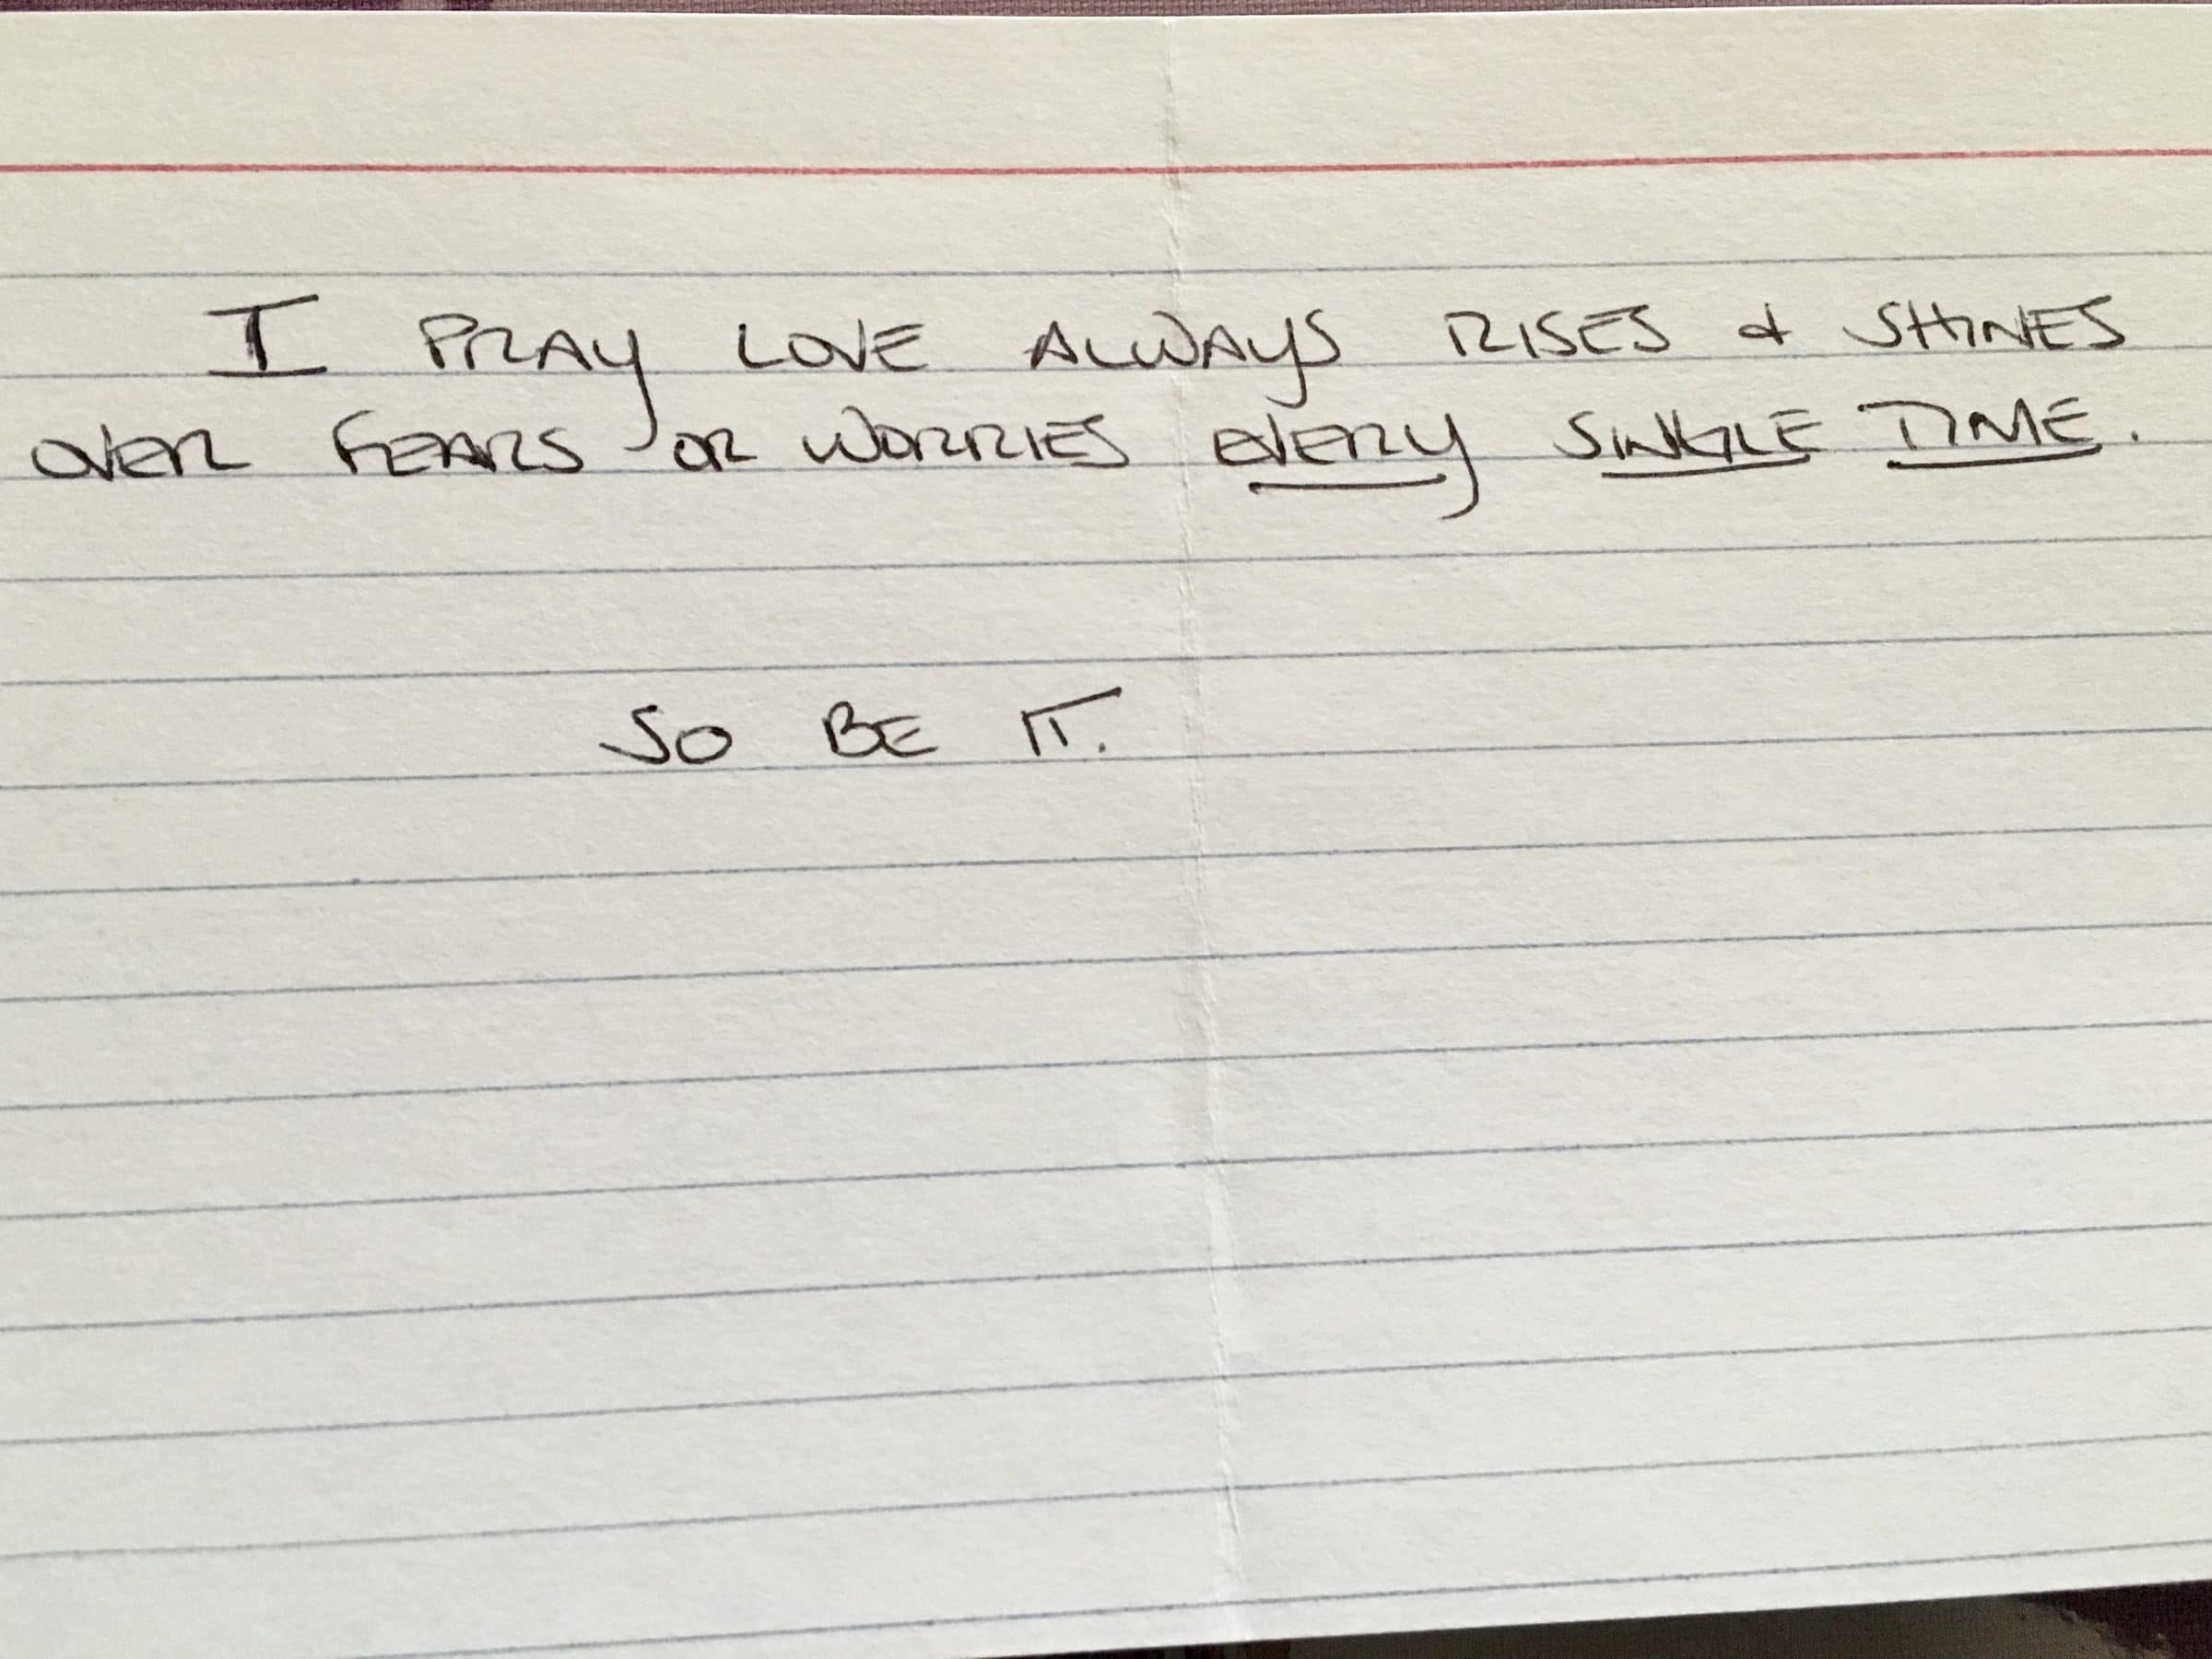 I PRAY LOVE ALWAYS RISES & SHINES
OVER FEARS OR WORRIES EVERY SINGLE TIME.
SO BE IT.